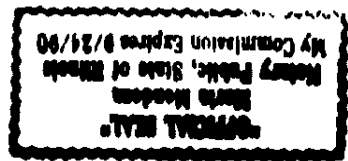 "OFFICIAL SEAL"
Maria Mendoza
Notary Public, State of Illinois
My Commission Expires 9/24/90